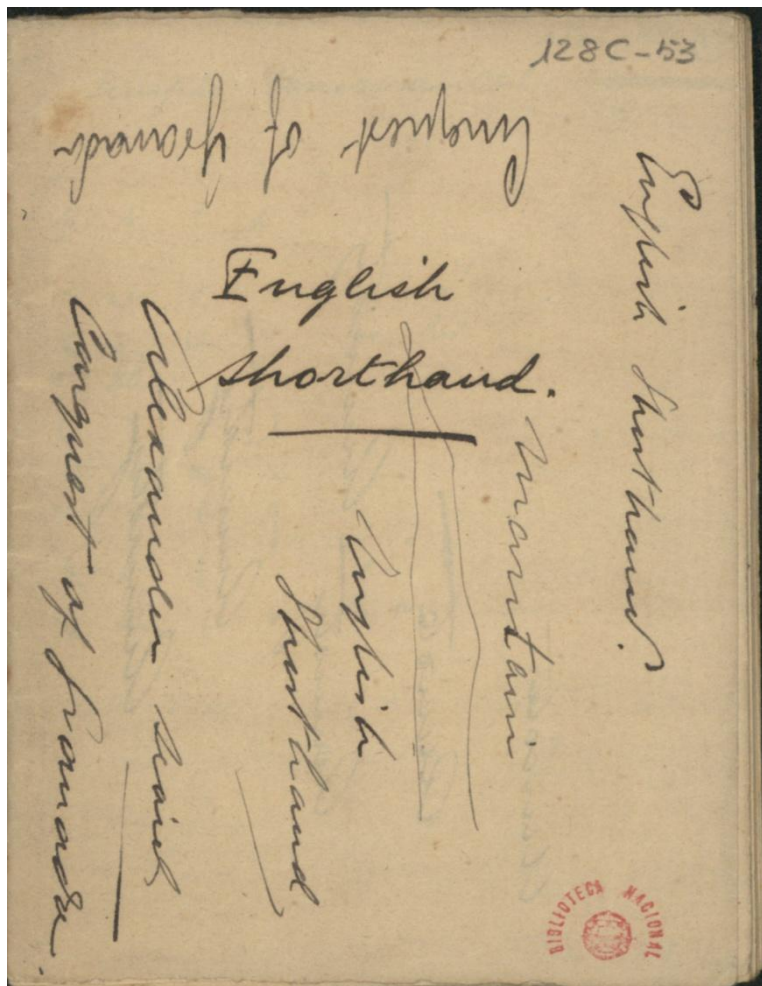 128C-53
Conquest of Granada
English
shorthand.
English Shorthand.
Mountain
English
Shorthand
Alexander
Conquest of Granada.
BIBLIOTECA NACIONAL